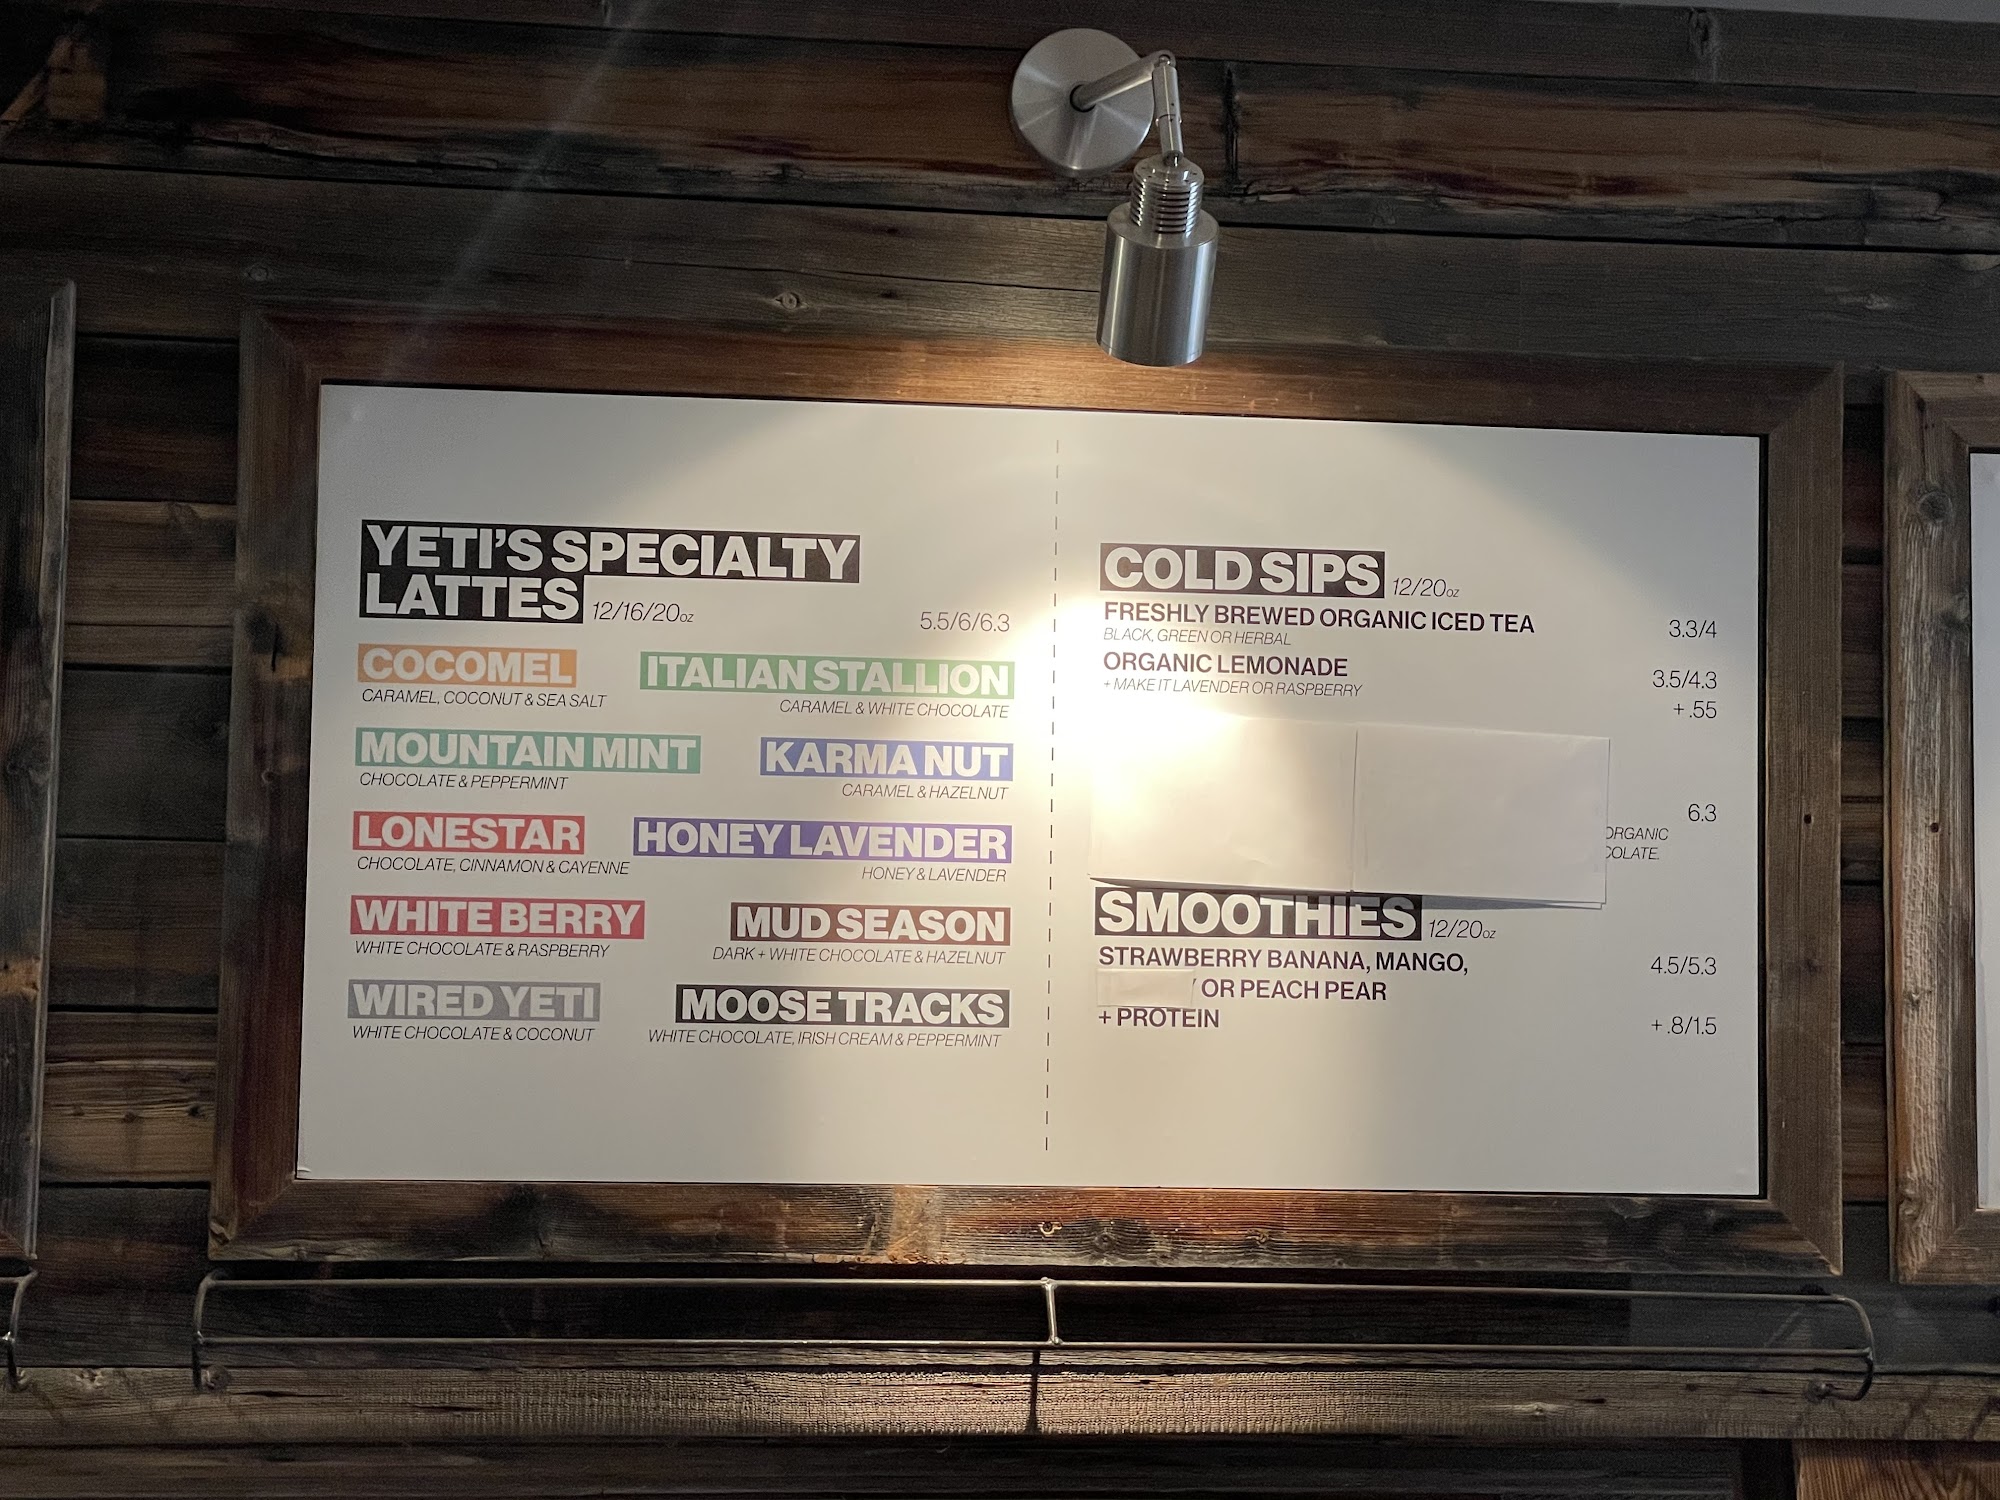 YETI'S SPECIALTY
LATTES 12/16/20oz 5.5/6/6.3
COCOMEL
CARAMEL, COCONUT & SEA SALT
ITALIAN STALLION
CARAMEL & WHITE CHOCOLATE
MOUNTAIN MINT
CHOCOLATE & PEPPERMINT
KARMA NUT
CARAMEL & HAZELNUT
LONESTAR
CHOCOLATE, CINNAMON & CAYENNE
HONEY LAVENDER
HONEY & LAVENDER
WHITE BERRY
WHITE CHOCOLATE & RASPBERRY
MUD SEASON
DARK + WHITE CHOCOLATE & HAZELNUT
WIRED YETI
WHITE CHOCOLATE & COCONUT
MOOSE TRACKS
WHITE CHOCOLATE, IRISH CREAM & PEPPERMINT
COLD SIPS 12/20oz
FRESHLY BREWED ORGANIC ICED TEA 3.3/4
BLACK, GREEN OR HERBAL
ORGANIC LEMONADE 3.5/4.3
+ MAKE IT LAVENDER OR RASPBERRY + .55
6.3
ORGANIC
COLATE.
SMOOTHIES 12/20oz
STRAWBERRY BANANA, MANGO, 4.5/5.3
OR PEACH PEAR
+ PROTEIN + .8/1.5